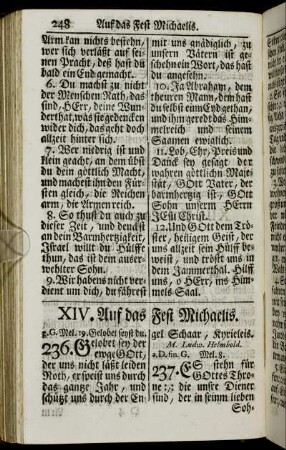 248 Auf das Fest Michaelis.
Arm kan nichts bestehn,
wer sich verläßt auf sei-
nen Pracht, deß hast du
bald ein End gemacht.
6. Du machst zu nicht
der Menschen Rath, das
sind, HErr, deine Wun-
derthat, was sie gedencken
wider dich, das geht doch
allzeit hinter sich.
7. Wer niedrig ist und
klein geacht, an dem übst
du dein göttlich Macht,
und machest ihn den Für-
sten gleich, die Reichen
arm, die Armen reich.
8. So thust du auch zu
dieser Zeit, und denckst
an dein Barmhertzigkeit,
Israel willt du Hülffe
thun, das ist dein auser-
wehlter Sohn.
9. Wir haben nicht ver-
dient um dich, du fährest
mit uns gnädiglich, zu
unsern Vätern ist ge-
schehn ein Wort, das hast
du angesehn.
10. Ja Abraham, dem
theuren Mann, dem hast
du selbst ein Eyd gethan,
und ihm geredt das Him-
melreich und seinem
Saamen ewiglich.
11. Lob, Ehr, Preis und
Danck sey gesagt der
wahren göttlichn Maje-
stät, GOtt Vater, der
barmhertzig ist, GOtt
Sohn unserm HErrn
JEsu Christ.
12. Und GOtt dem Trö-
ster, heiligem Geist, der
uns allzeit sein Hülf be-
weist, er wolle uns trösten
in dem Jammerthal. Hilff
uns, o HErr, ins Him-
mels-Saal.
XIV. Auf das Fest Michaelis.
2. G. Mel. 19. Gelobet seyst du.
236. Gelobet sey der
ewge GOtt,
der uns nicht läst leiden
Noth, er speist uns durch
das gantze Jahr, und
schützt uns durch der En-
gel Schaar, Kyrieleis.
M. Ludw. Helmbold.
2. D. fin G. Mel. 8.
237. ES stehn für
GOttes Thro-
ne :,: die unsre Diener
sind, der in seinm lieben
Soh-